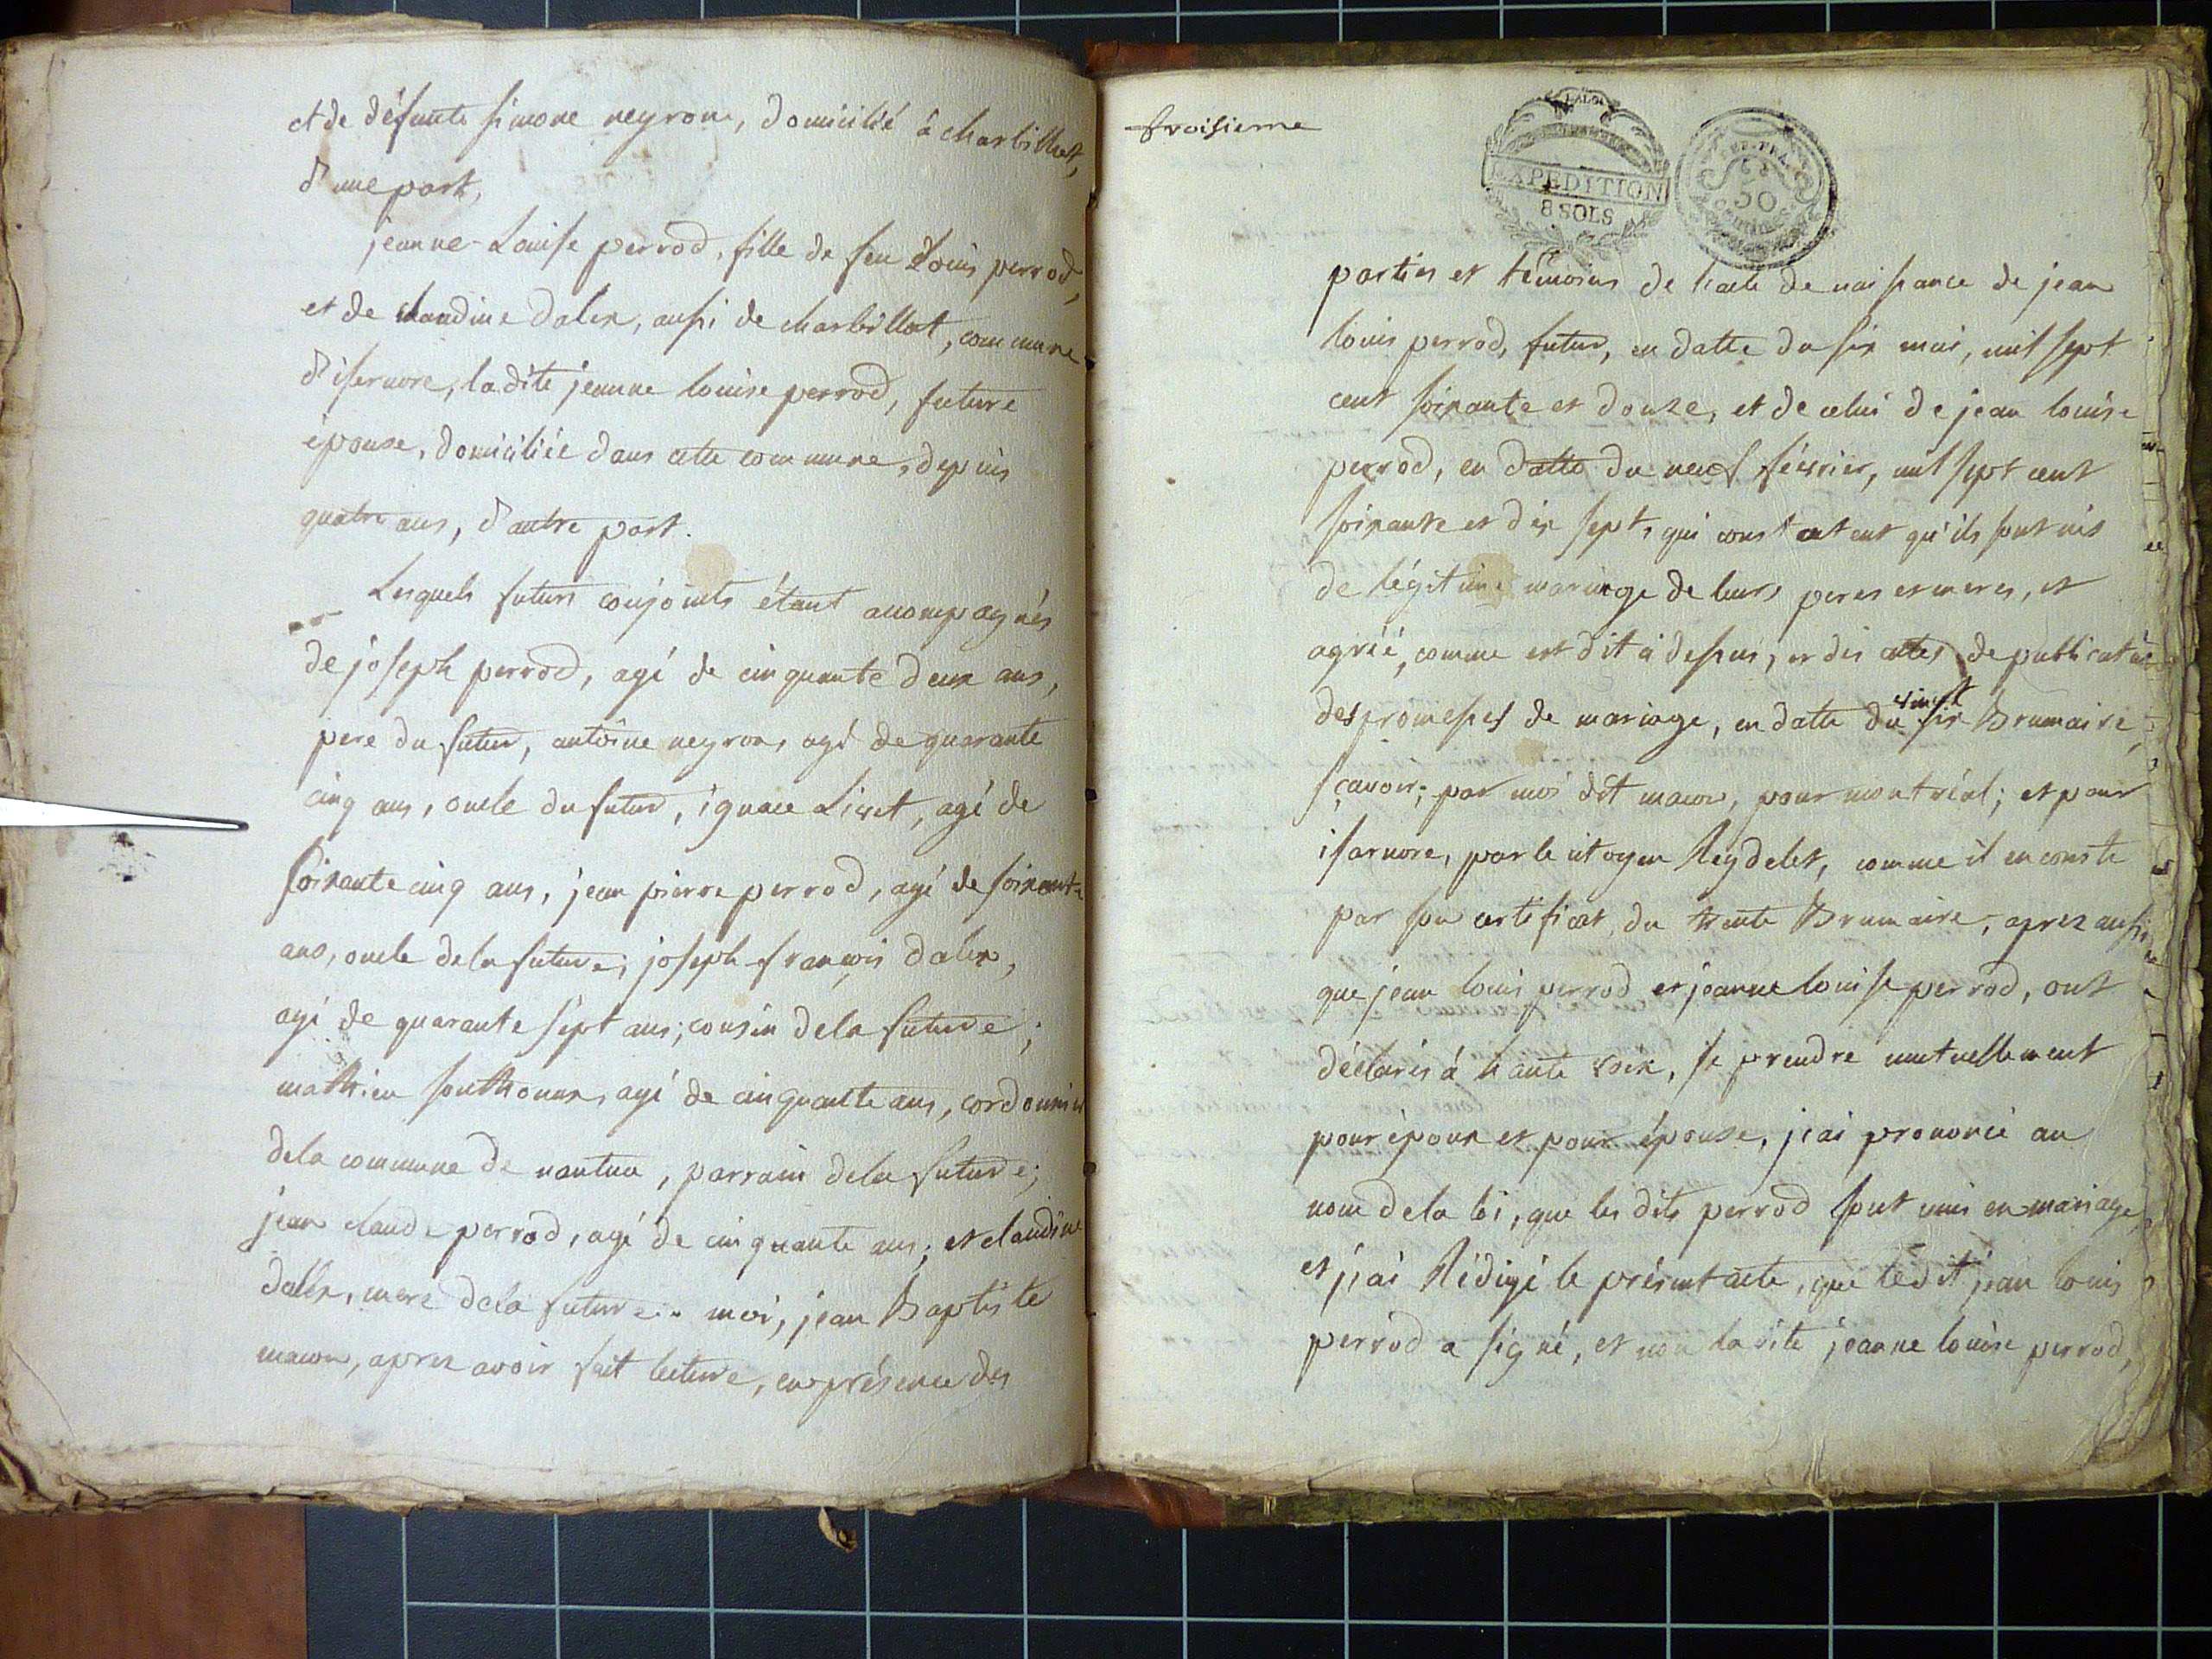 et de défunte simone neyron, domicilié à charbillat,
d'une part,
jeanne-Louise perrod, fille de feu Louis perrod,
et de claudine dalex, aussi de charbillat, commune
d'isernore, ladite jeanne louise perrod, future
épouse, domiciliée dans cette commune, depuis
quatre ans, d'autre part.
Lesquels futurs conjoints étant accompagnés
de joseph perrod, agé de cinquante deux ans,
pere du futur, antoine neyron, agé de quarante
cinq ans, oncle du futur, ignace Livet, agé de
soixante cinq ans, jean pierre perrod, agé de soixante
ans, oncle dela future; joseph françois dalex,
agé de quarante sept ans; cousin dela future;
mathieu sonthonax, agé de cinquante ans, cordonnier
dela commune de nantua, parrain dela future;
jean claude perrod, agé de cinquante ans; et claudine
dalex, mere dela future.. moi, jean Baptiste
macon, aprez avoir fait lecture, en présence des
troisieme
LA LOI
EXPEDITION
8 SOLS
REP. FRA.
50
CENTIMES
parties et témoins de l'acte de naissance de jean
louis perrod, futur, en datte du six mai, mil sept
cent soixante et douze, et de celui de jean louise
perrod, en datte du neuf février, mil sept cent
soixante et dix sept, qui constatent qu'ils sont nés
de légitime mariage de leurs peres et meres, et
agréé, comme est dit ci dessus, et des actes de publication
des promesses de mariage, en datte du vingt six Brumaire,
sçavoir; par moi dit macon, pour montréal; et pour
isarnore, par le citoyen Reydelet, comme il en conste
par son certificat du trente Brumaire, aprez aussi
que jean louis perrod et jeanne louise perrod, ont
déclarés à haute voix, se prendre mutuellement
pour époux et pour épouse, j'ai prononcé au
nom dela loi, que les dits perrod sont unis en mariage,
et j'ai Rédigé le présent acte, que ledit jean louis
perrod a signé, et non ladite jeanne louise perrod,